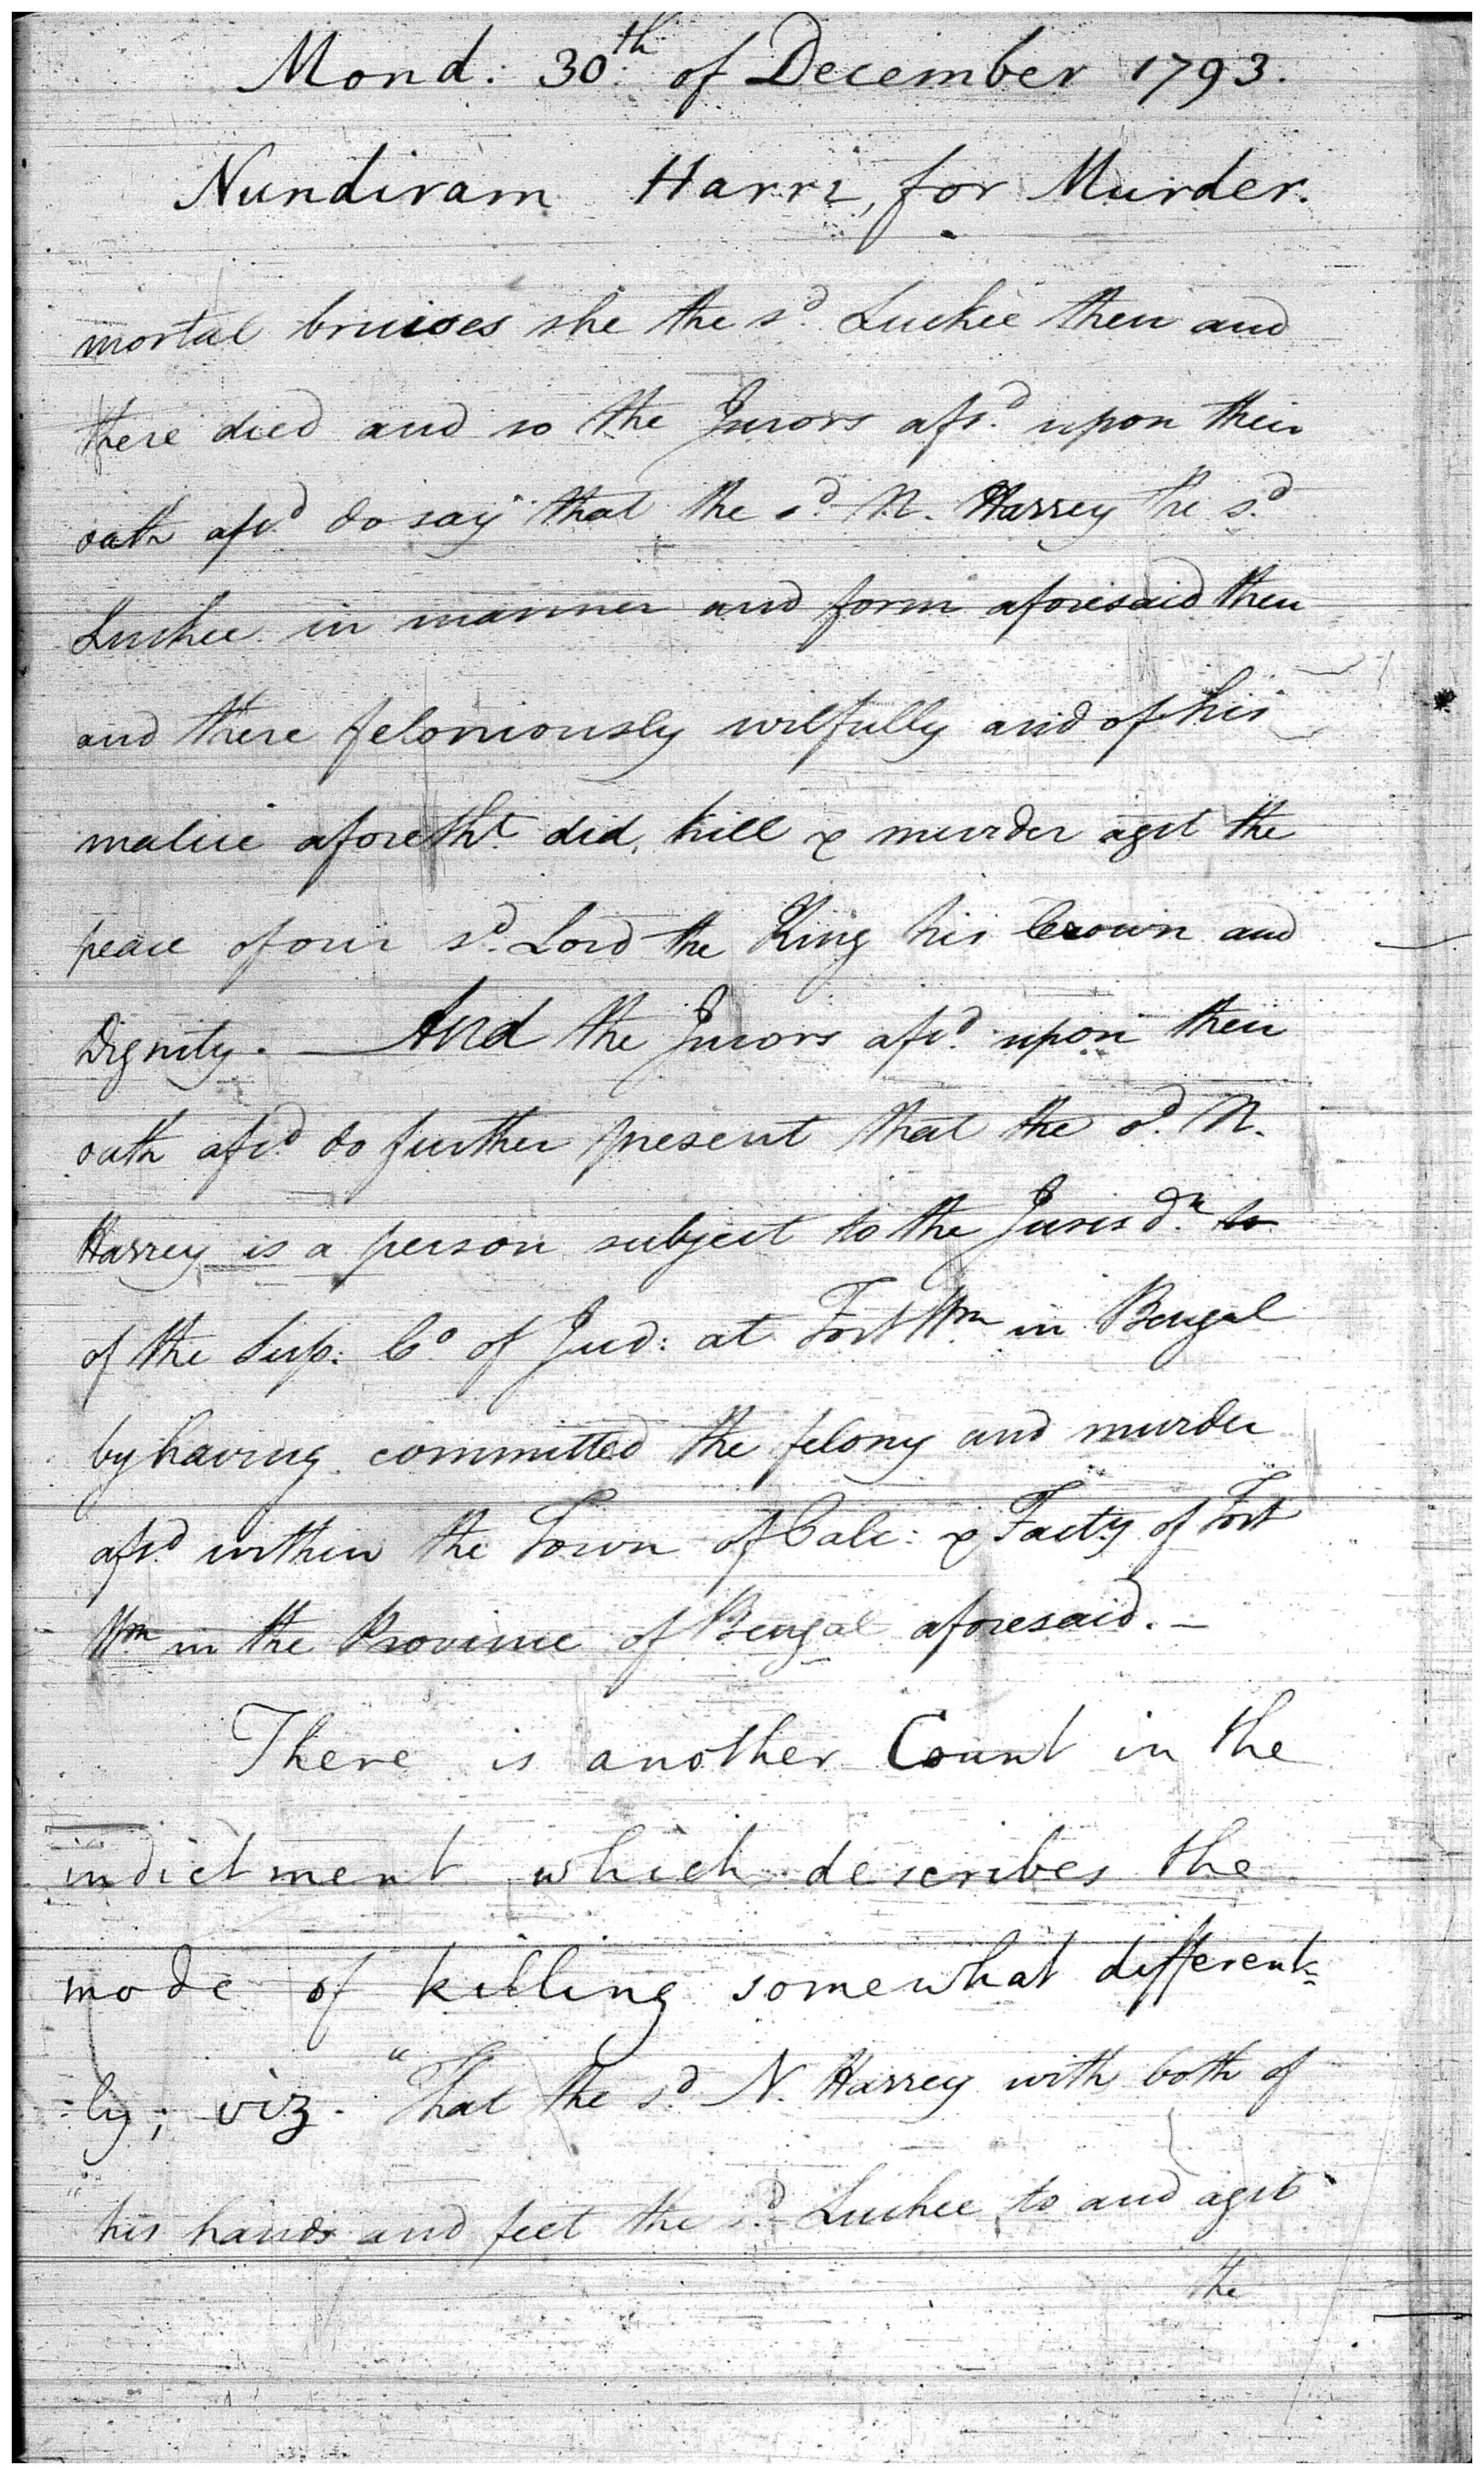 Mond: 30th of December 1793.
Nundiram Harri, for Murder.
mortal bruises she the sd. Luckee then and
there died and so the Jurors afsd. upon their
oath afsd. do say that the sd. N. Harrey he sd.
Luckee in manner and form aforesaid then
and there feloniously wilfully and of his
malice aforetht. did, kill & murder agst the
peace of our sd. Lord the King his Crown and
Dignity. — And the Jurors afsd. upon their
oath afsd. do further present that the sd. N.
Harrey is a person subject to the Jurisdn. to
of the Sup: Co. of Jud: at Fort Wm. in Bengal
by having committed the felony and murder
afsd. within the Town of Calc: & Facty of Fort
Wm. in the Province of Bengal aforesaid. —
There is another Count in the
indictment which describes the
mode of killing somewhat different=
=ly; viz. "That the sd. N. Harrey with both of
" his hands and feet the sd. Luckee to and agst
the